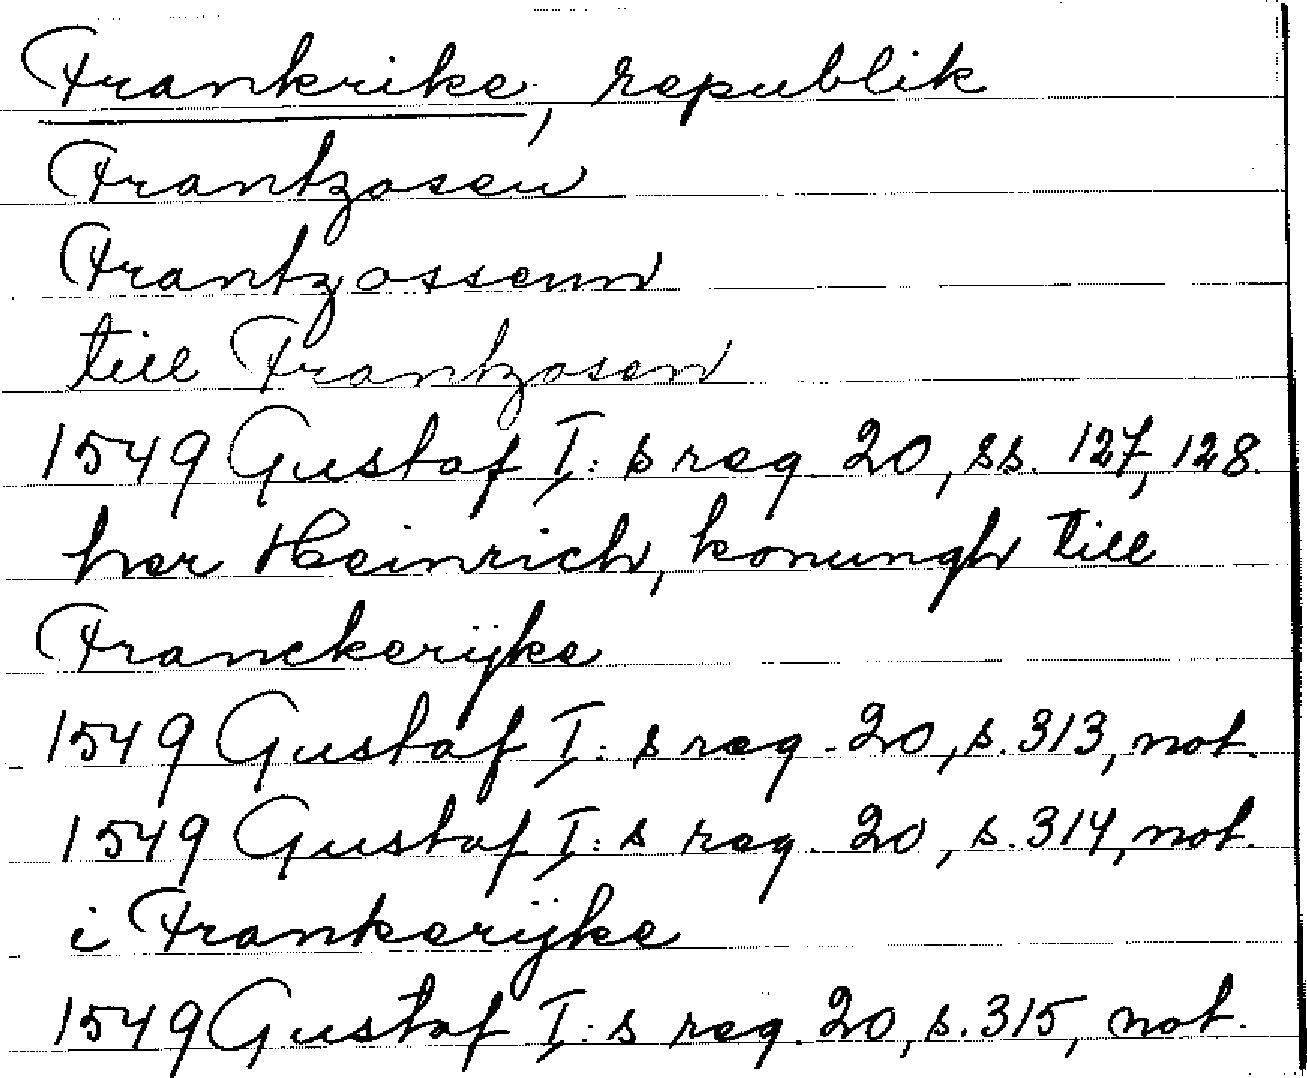 Frankrike, republik
Frantzosen
Frantzossenn
till Frantzosen
1549 Gustaf I:s reg. 20, ss. 127, 128.
her Heinrich, konungh till
Franckerijke
1549 Gustaf I:s reg. 20, s. 313, not.
1549 Gustaf I:s reg. 20, s. 314, not.
i Frankerijke
1549 Gustaf I:s reg. 20, s. 315, not.